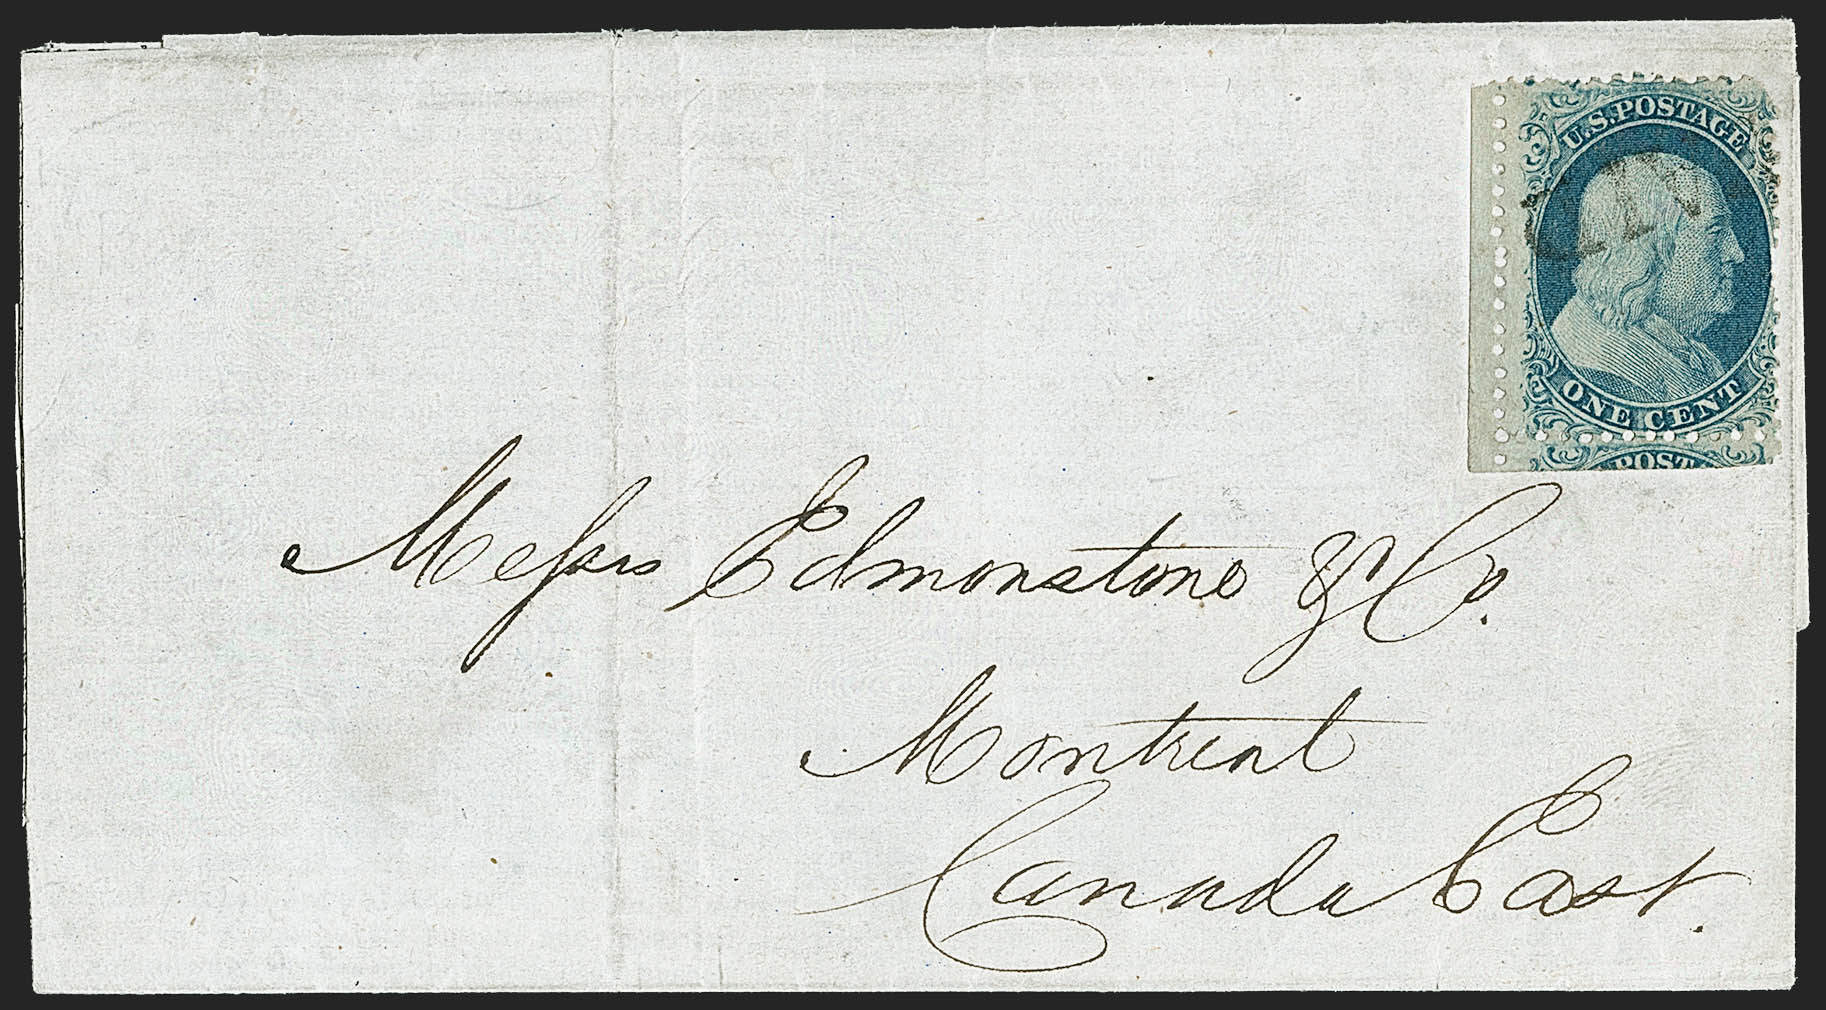 U.S. POSTAGE
ONE CENT
POST
Messrs Edmonstone & Co.
Montreal
Canada East.